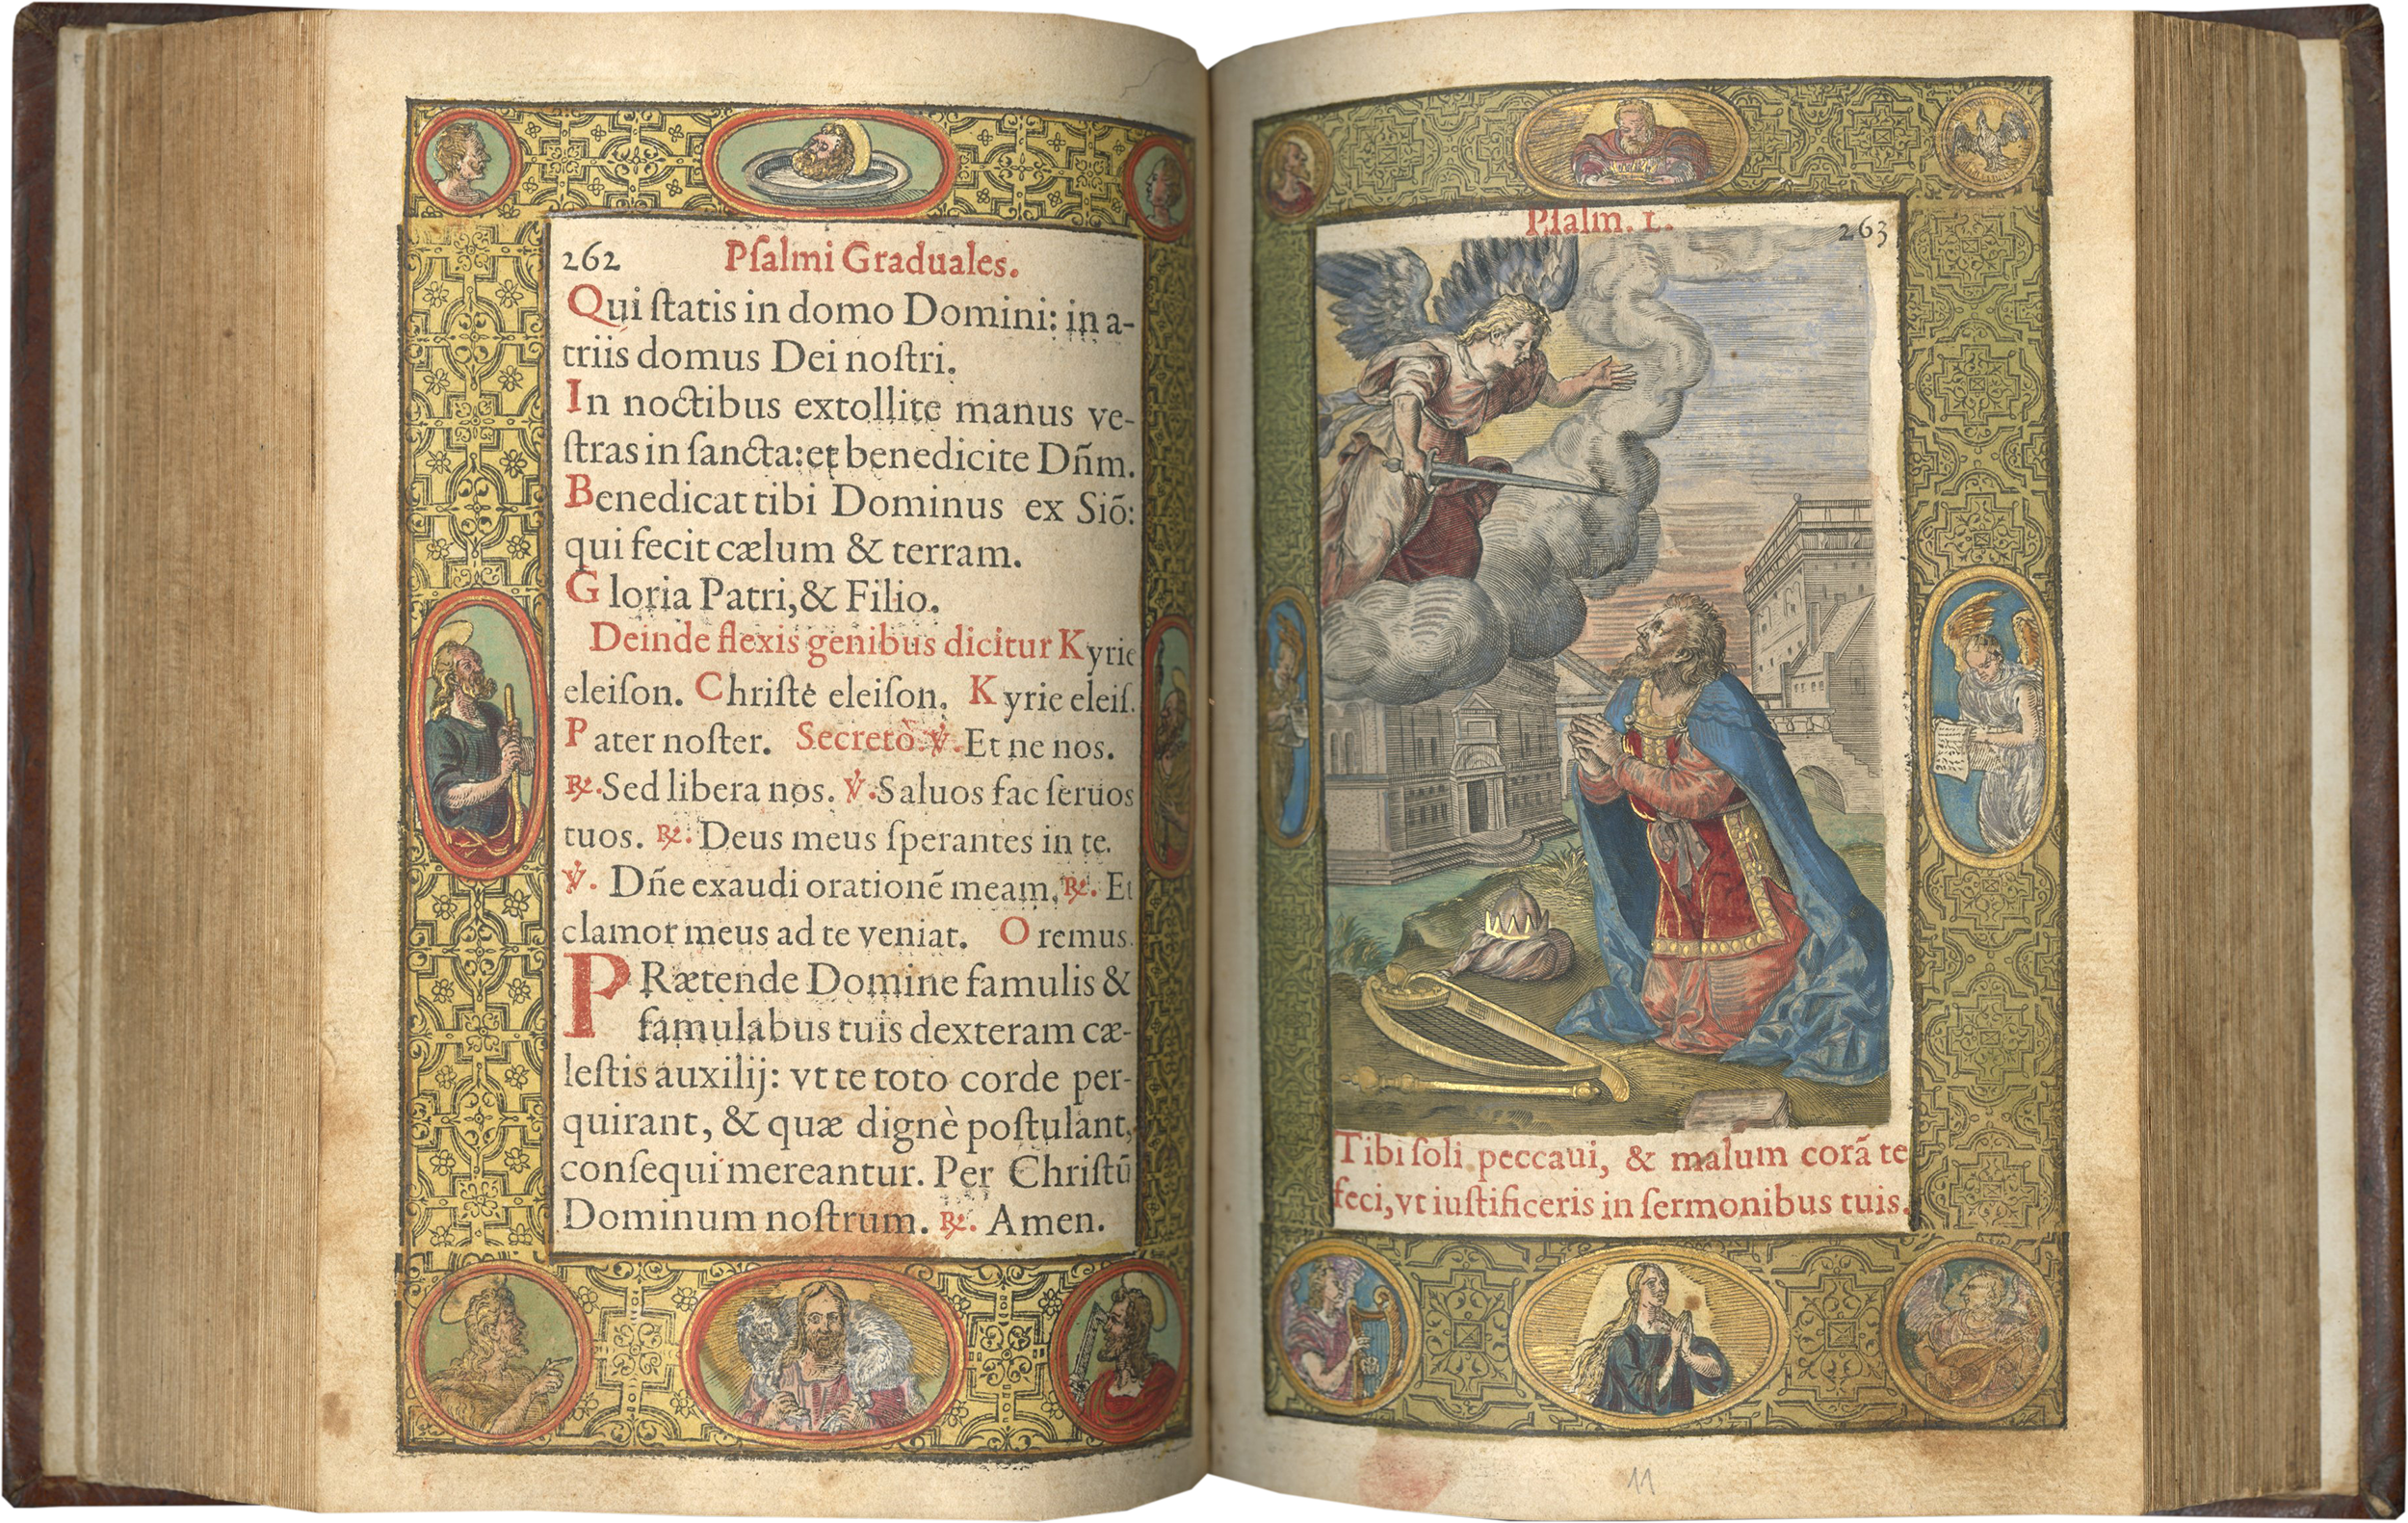 262 Pſalmi Graduales.
Qui ſtatis in domo Domini: in a-
triis domus Dei noſtri.
In noctibus extollite manus ve-
ſtras in ſancta: et benedicite Dn̄m.
Benedicat tibi Dominus ex Siō:
qui fecit cælum & terram.
Gloria Patri, & Filio.
Deinde flexis genibus dicitur Kyrie
eleiſon. Chriſte eleiſon. Kyrie eleiſ.
Pater noſter. Secretò. ℣. Et ne nos.
℟. Sed libera nos. ℣. Saluos fac ſeruos
tuos. ℟. Deus meus ſperantes in te.
℣. Dn̄e exaudi orationē meam. ℟. Et
clamor meus ad te veniat. Oremus.
PRætende Domine famulis &
famulabus tuis dexteram cæ-
leſtis auxilij: vt te toto corde per-
quirant, & quæ dignè poſtulant,
conſequi mereantur. Per Chriſtū
Dominum noſtrum. ℟. Amen.
Pſalm. L. 263
Tibi ſoli peccaui, & malum corā te
feci, vt iuſtificeris in ſermonibus tuis.
11